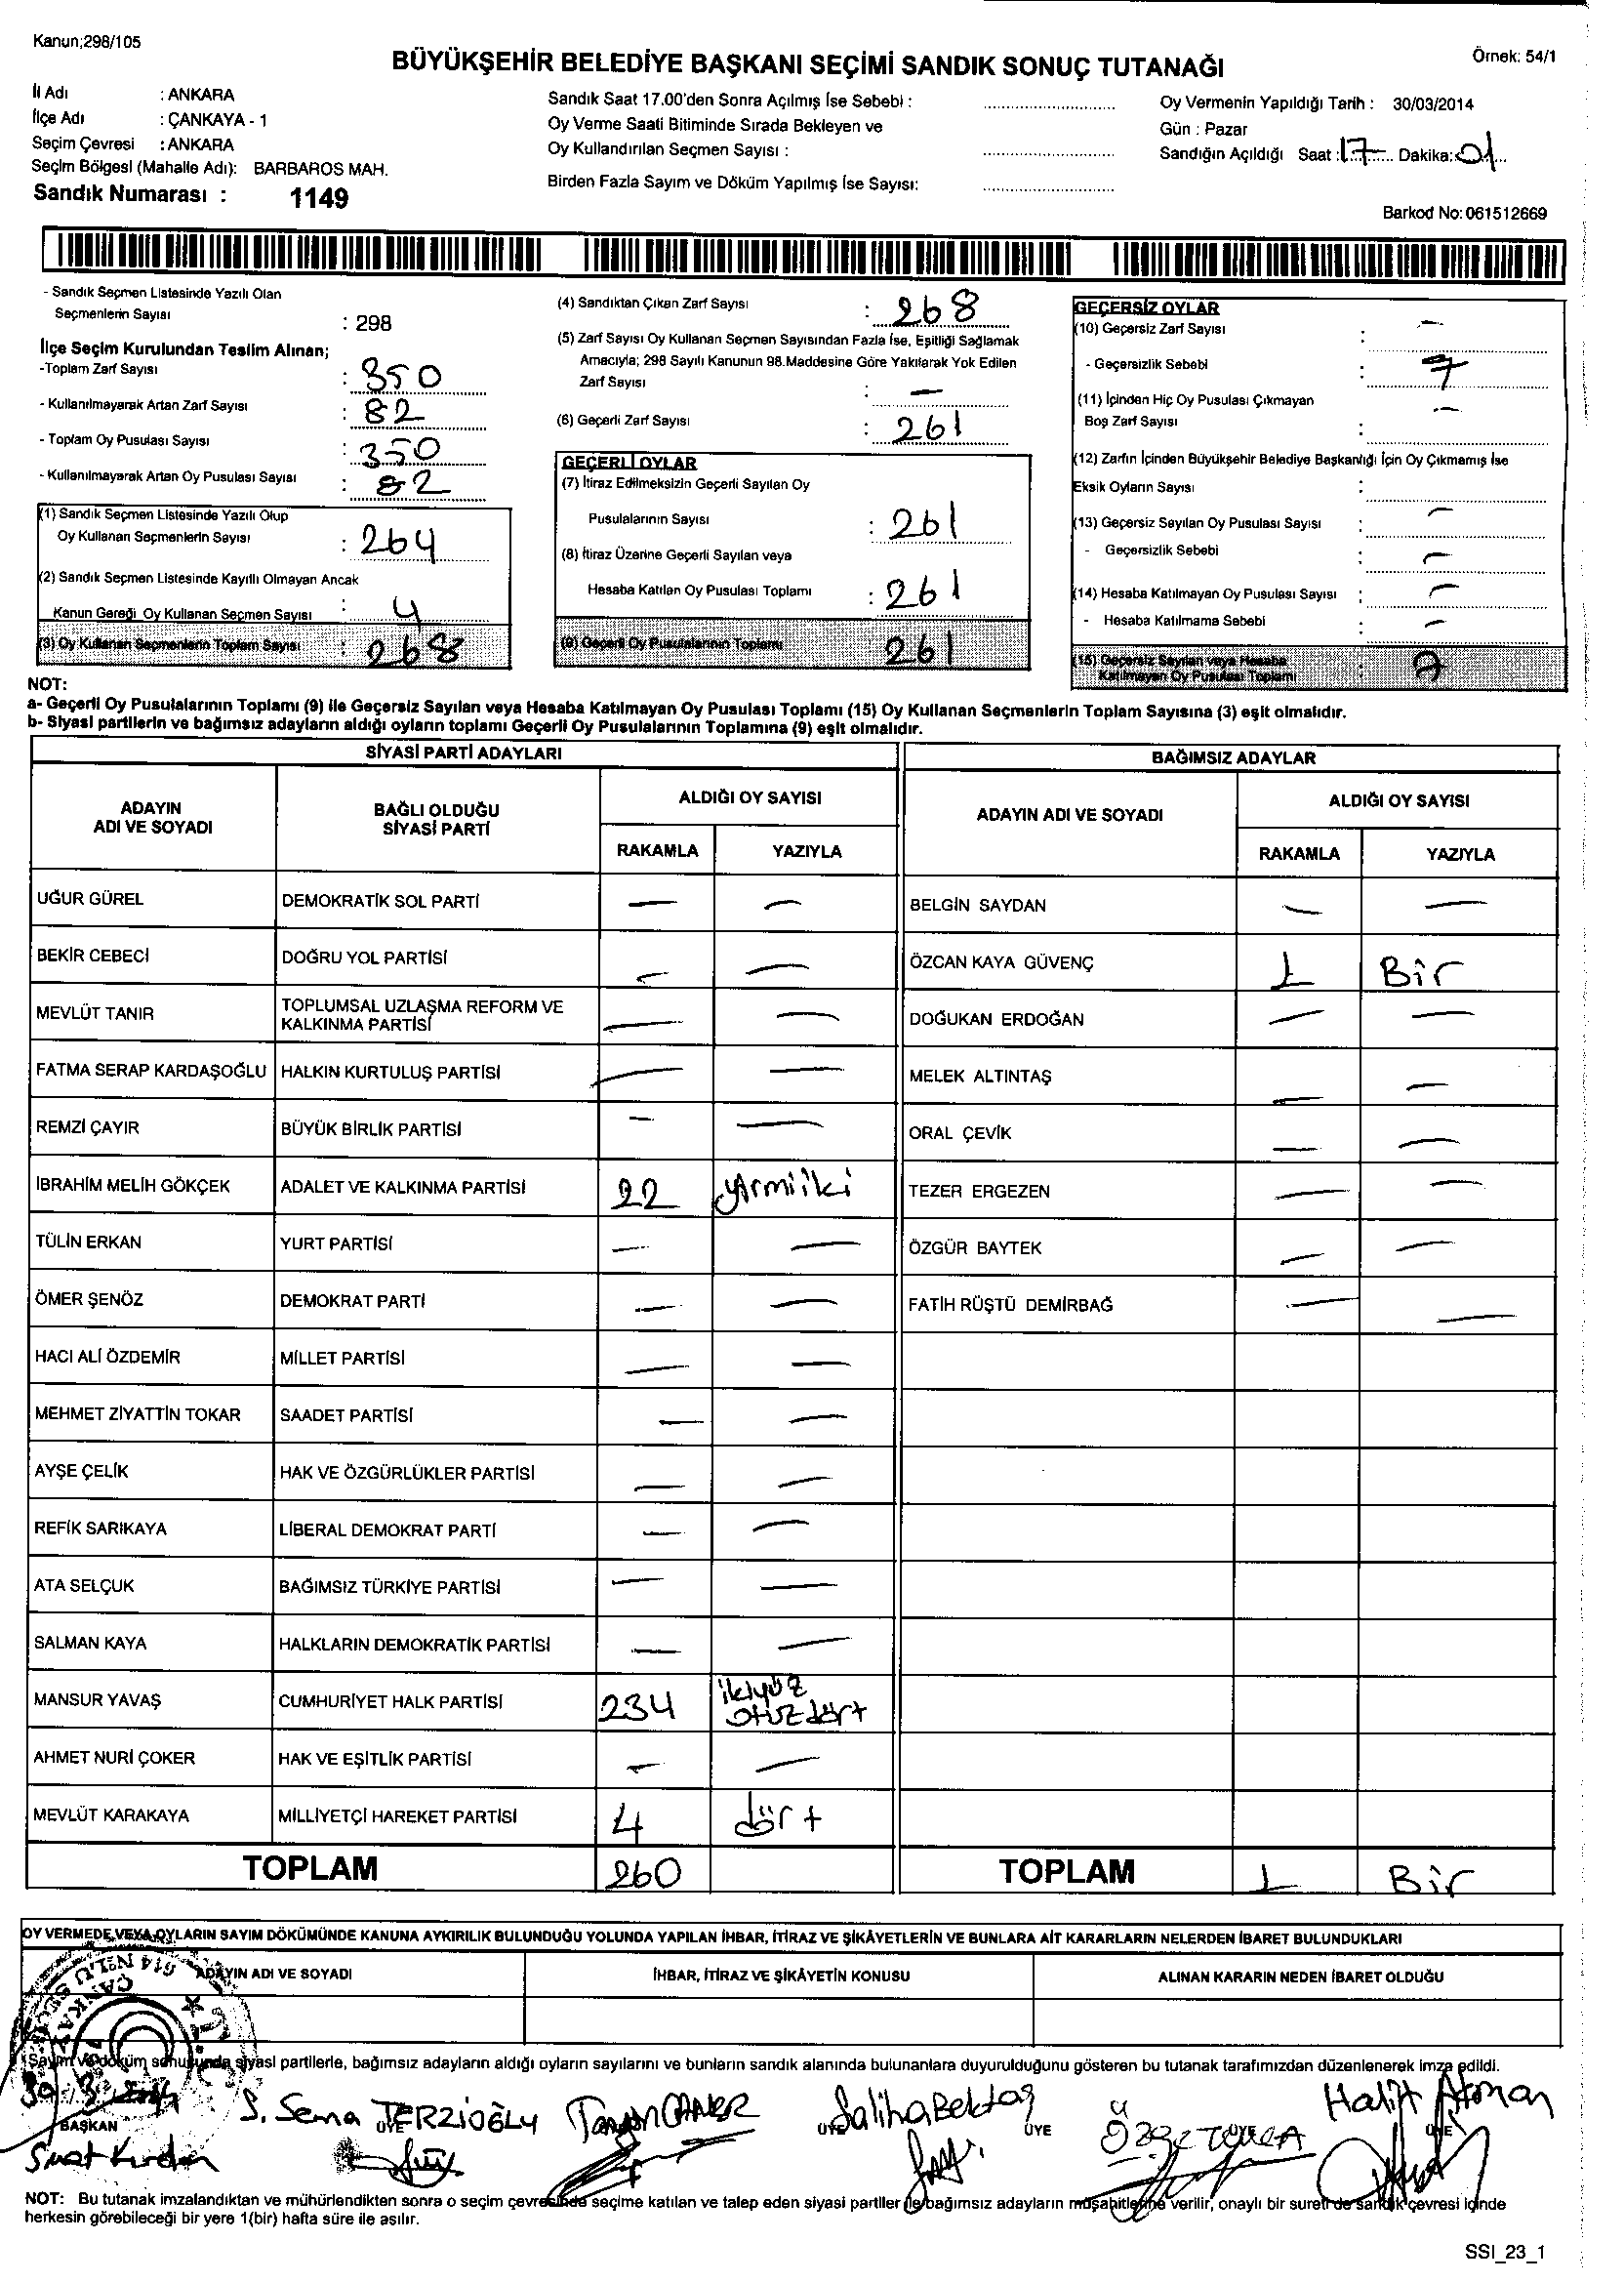 Kanun;298/105
BÜYÜKŞEHİR BELEDİYE BAŞKANI SEÇİMİ SANDIK SONUÇ TUTANAĞI
Örnek: 54/1
İl Adı : ANKARA
İlçe Adı : ÇANKAYA - 1
Seçim Çevresi : ANKARA
Seçim Bölgesi (Mahalle Adı): BARBAROS MAH.
Sandık Numarası : 1149
Sandık Saat 17.00'den Sonra Açılmış İse Sebebi :
Oy Verme Saati Bitiminde Sırada Bekleyen ve
Oy Kullandırılan Seçmen Sayısı :
Birden Fazla Sayım ve Döküm Yapılmış İse Sayısı:
Oy Vermenin Yapıldığı Tarih : 30/03/2014
Gün : Pazar
Sandığın Açıldığı Saat : 17 Dakika: 01
Barkod No: 061512669
- Sandık Seçmen Listesinde Yazılı Olan
Seçmenlerin Sayısı : 298
İlçe Seçim Kurulundan Teslim Alınan;
-Toplam Zarf Sayısı : 350
- Kullanılmayarak Artan Zarf Sayısı : 82
- Toplam Oy Pusulası Sayısı : 350
- Kullanılmayarak Artan Oy Pusulası Sayısı : 82
(1) Sandık Seçmen Listesinde Yazılı Olup
Oy Kullanan Seçmenlerin Sayısı : 264
(2) Sandık Seçmen Listesinde Kayıtlı Olmayan Ancak
Kanun Gereği Oy Kullanan Seçmen Sayısı : 4
(3) Oy Kullanan Seçmenlerin Toplam Sayısı : 268
(4) Sandıktan Çıkan Zarf Sayısı : 268
(5) Zarf Sayısı Oy Kullanan Seçmen Sayısından Fazla İse, Eşitliği Sağlamak
Amacıyla; 298 Sayılı Kanunun 98.Maddesine Göre Yakılarak Yok Edilen
Zarf Sayısı : —
(6) Geçerli Zarf Sayısı : 261
GEÇERLİ OYLAR
(7) İtiraz Edilmeksizin Geçerli Sayılan Oy
Pusulalarının Sayısı : 261
(8) İtiraz Üzerine Geçerli Sayılan veya
Hesaba Katılan Oy Pusulası Toplamı : 261
(9) Geçerli Oy Pusulalarının Toplamı 261
GEÇERSİZ OYLAR
(10) Geçersiz Zarf Sayısı : —
- Geçersizlik Sebebi : 7
(11) İçinden Hiç Oy Pusulası Çıkmayan —
Boş Zarf Sayısı :
(12) Zarfın İçinden Büyükşehir Belediye Başkanlığı İçin Oy Çıkmamış İse
Eksik Oyların Sayısı :
(13) Geçersiz Sayılan Oy Pusulası Sayısı : —
- Geçersizlik Sebebi : —
(14) Hesaba Katılmayan Oy Pusulası Sayısı : —
- Hesaba Katılmama Sebebi —
(15) Geçersiz Sayılan veya Hesaba
Katılmayan Oy Pusulası Toplamı : 7
NOT:
a- Geçerli Oy Pusulalarının Toplamı (9) ile Geçersiz Sayılan veya Hesaba Katılmayan Oy Pusulası Toplamı (15) Oy Kullanan Seçmenlerin Toplam Sayısına (3) eşit olmalıdır.
b- Siyasi partilerin ve bağımsız adayların aldığı oyların toplamı Geçerli Oy Pusulalarının Toplamına (9) eşit olmalıdır.
SİYASİ PARTİ ADAYLARI
ADAYIN
ADI VE SOYADI
BAĞLI OLDUĞU
SİYASİ PARTİ
ALDIĞI OY SAYISI
RAKAMLA YAZIYLA
UĞUR GÜREL DEMOKRATİK SOL PARTİ — —
BEKİR CEBECİ DOĞRU YOL PARTİSİ — —
MEVLÜT TANIR TOPLUMSAL UZLAŞMA REFORM VE
KALKINMA PARTİSİ — —
FATMA SERAP KARDAŞOĞLU HALKIN KURTULUŞ PARTİSİ — —
REMZİ ÇAYIR BÜYÜK BİRLİK PARTİSİ — —
İBRAHİM MELİH GÖKÇEK ADALET VE KALKINMA PARTİSİ 22 yirmiiki
TÜLİN ERKAN YURT PARTİSİ — —
ÖMER ŞENÖZ DEMOKRAT PARTİ — —
HACI ALİ ÖZDEMİR MİLLET PARTİSİ — —
MEHMET ZİYATTİN TOKAR SAADET PARTİSİ — —
AYŞE ÇELİK HAK VE ÖZGÜRLÜKLER PARTİSİ — —
REFİK SARIKAYA LİBERAL DEMOKRAT PARTİ — —
ATA SELÇUK BAĞIMSIZ TÜRKİYE PARTİSİ — —
SALMAN KAYA HALKLARIN DEMOKRATİK PARTİSİ — —
MANSUR YAVAŞ CUMHURİYET HALK PARTİSİ 234 ikiyüz
otuzdört
AHMET NURİ ÇOKER HAK VE EŞİTLİK PARTİSİ — —
MEVLÜT KARAKAYA MİLLİYETÇİ HAREKET PARTİSİ 4 dört
TOPLAM 260
BAĞIMSIZ ADAYLAR
ADAYIN ADI VE SOYADI
ALDIĞI OY SAYISI
RAKAMLA YAZIYLA
BELGİN SAYDAN — —
ÖZCAN KAYA GÜVENÇ 1 Bir
DOĞUKAN ERDOĞAN — —
MELEK ALTINTAŞ — —
ORAL ÇEVİK — —
TEZER ERGEZEN — —
ÖZGÜR BAYTEK — —
FATİH RÜŞTÜ DEMİRBAĞ — —
TOPLAM 1 Bir
OY VERMEDE VEYA OYLARIN SAYIM DÖKÜMÜNDE KANUNA AYKIRILIK BULUNDUĞU YOLUNDA YAPILAN İHBAR, İTİRAZ VE ŞİKÂYETLERİN VE BUNLARA AİT KARARLARIN NELERDEN İBARET BULUNDUKLARI
ADAYIN ADI VE SOYADI
İHBAR, İTİRAZ VE ŞİKÂYETİN KONUSU
ALINAN KARARIN NEDEN İBARET OLDUĞU
Sayım ve döküm sonucunda siyasi partilerle, bağımsız adayların aldığı oyların sayılarını ve bunların sandık alanında bulunanlara duyurulduğunu gösteren bu tutanak tarafımızdan düzenlenerek imza edildi.
30/3/2014
S. Sema TERZİOĞLU
Saliha Bektaş
Halit Akman
BAŞKAN ÜYE ÜYE ÜYE ÜYE
NOT: Bu tutanak imzalandıktan ve mühürlendikten sonra o seçim çevresinde seçime katılan ve talep eden siyasi partiler ile bağımsız adayların müşahitlerine verilir, onaylı bir sureti de sandık çevresi içinde
herkesin görebileceği bir yere 1(bir) hafta süre ile asılır.
SSI_23_1